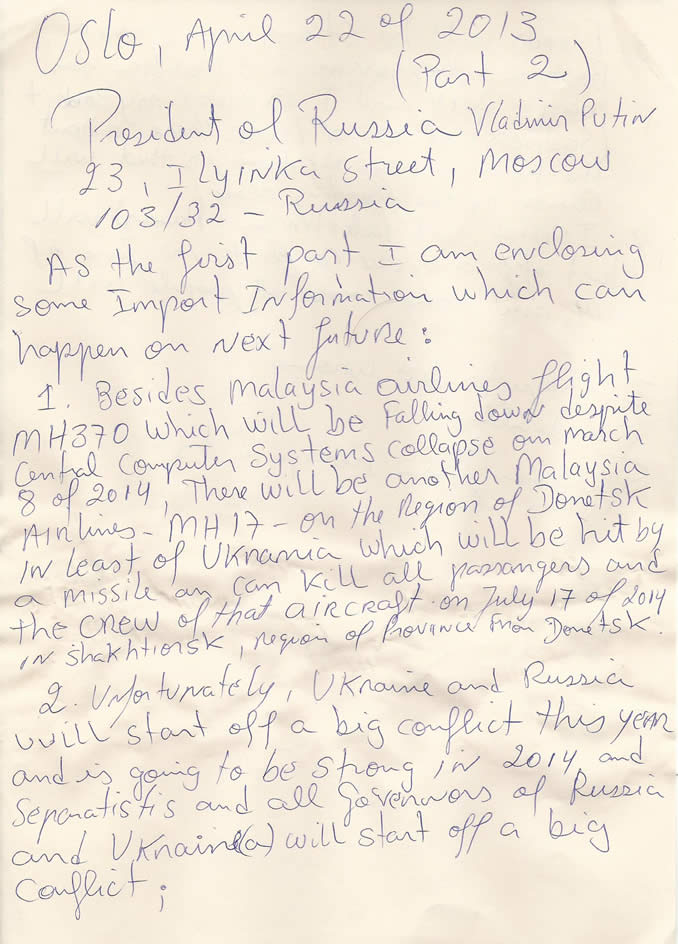 Oslo, April 22 of 2013
(Part 2)
President of Russia Vladimir Putin
23, Ilyinka Street, Moscow
103132 - Russia
As the first part I am enclosing
some Import Information which can
happen on Next future:
1. Besides Malaysia airlines flight
MH370 which will be Falling down despite
Central Computer Systems collapse on march
8 of 2014, There will be another Malaysia
Airlines - MH17 - on the Region of Donetsk
in least of Ukrania which will be hit by
a missile an can kill all passangers and
the crew of that aircraft on July 17 of 2014
in Shakhtiorsk, region of Province from Donetsk.
2. Unfortunately, Ukraine and Russia
will start off a big conflict this year
and is going to be strong in 2014, and
Separatistis and all Governors of Russia
and Ukraine(a) will start off a big
conflict;